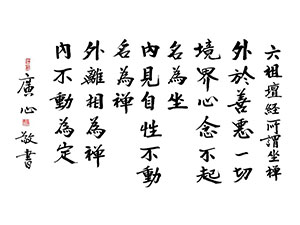 六祖壇經所謂坐禪
外於善惡一切
境界心念不起
名為坐
內見自性不動
名為禪
外離相為禪
內不動為定
廣心敬書